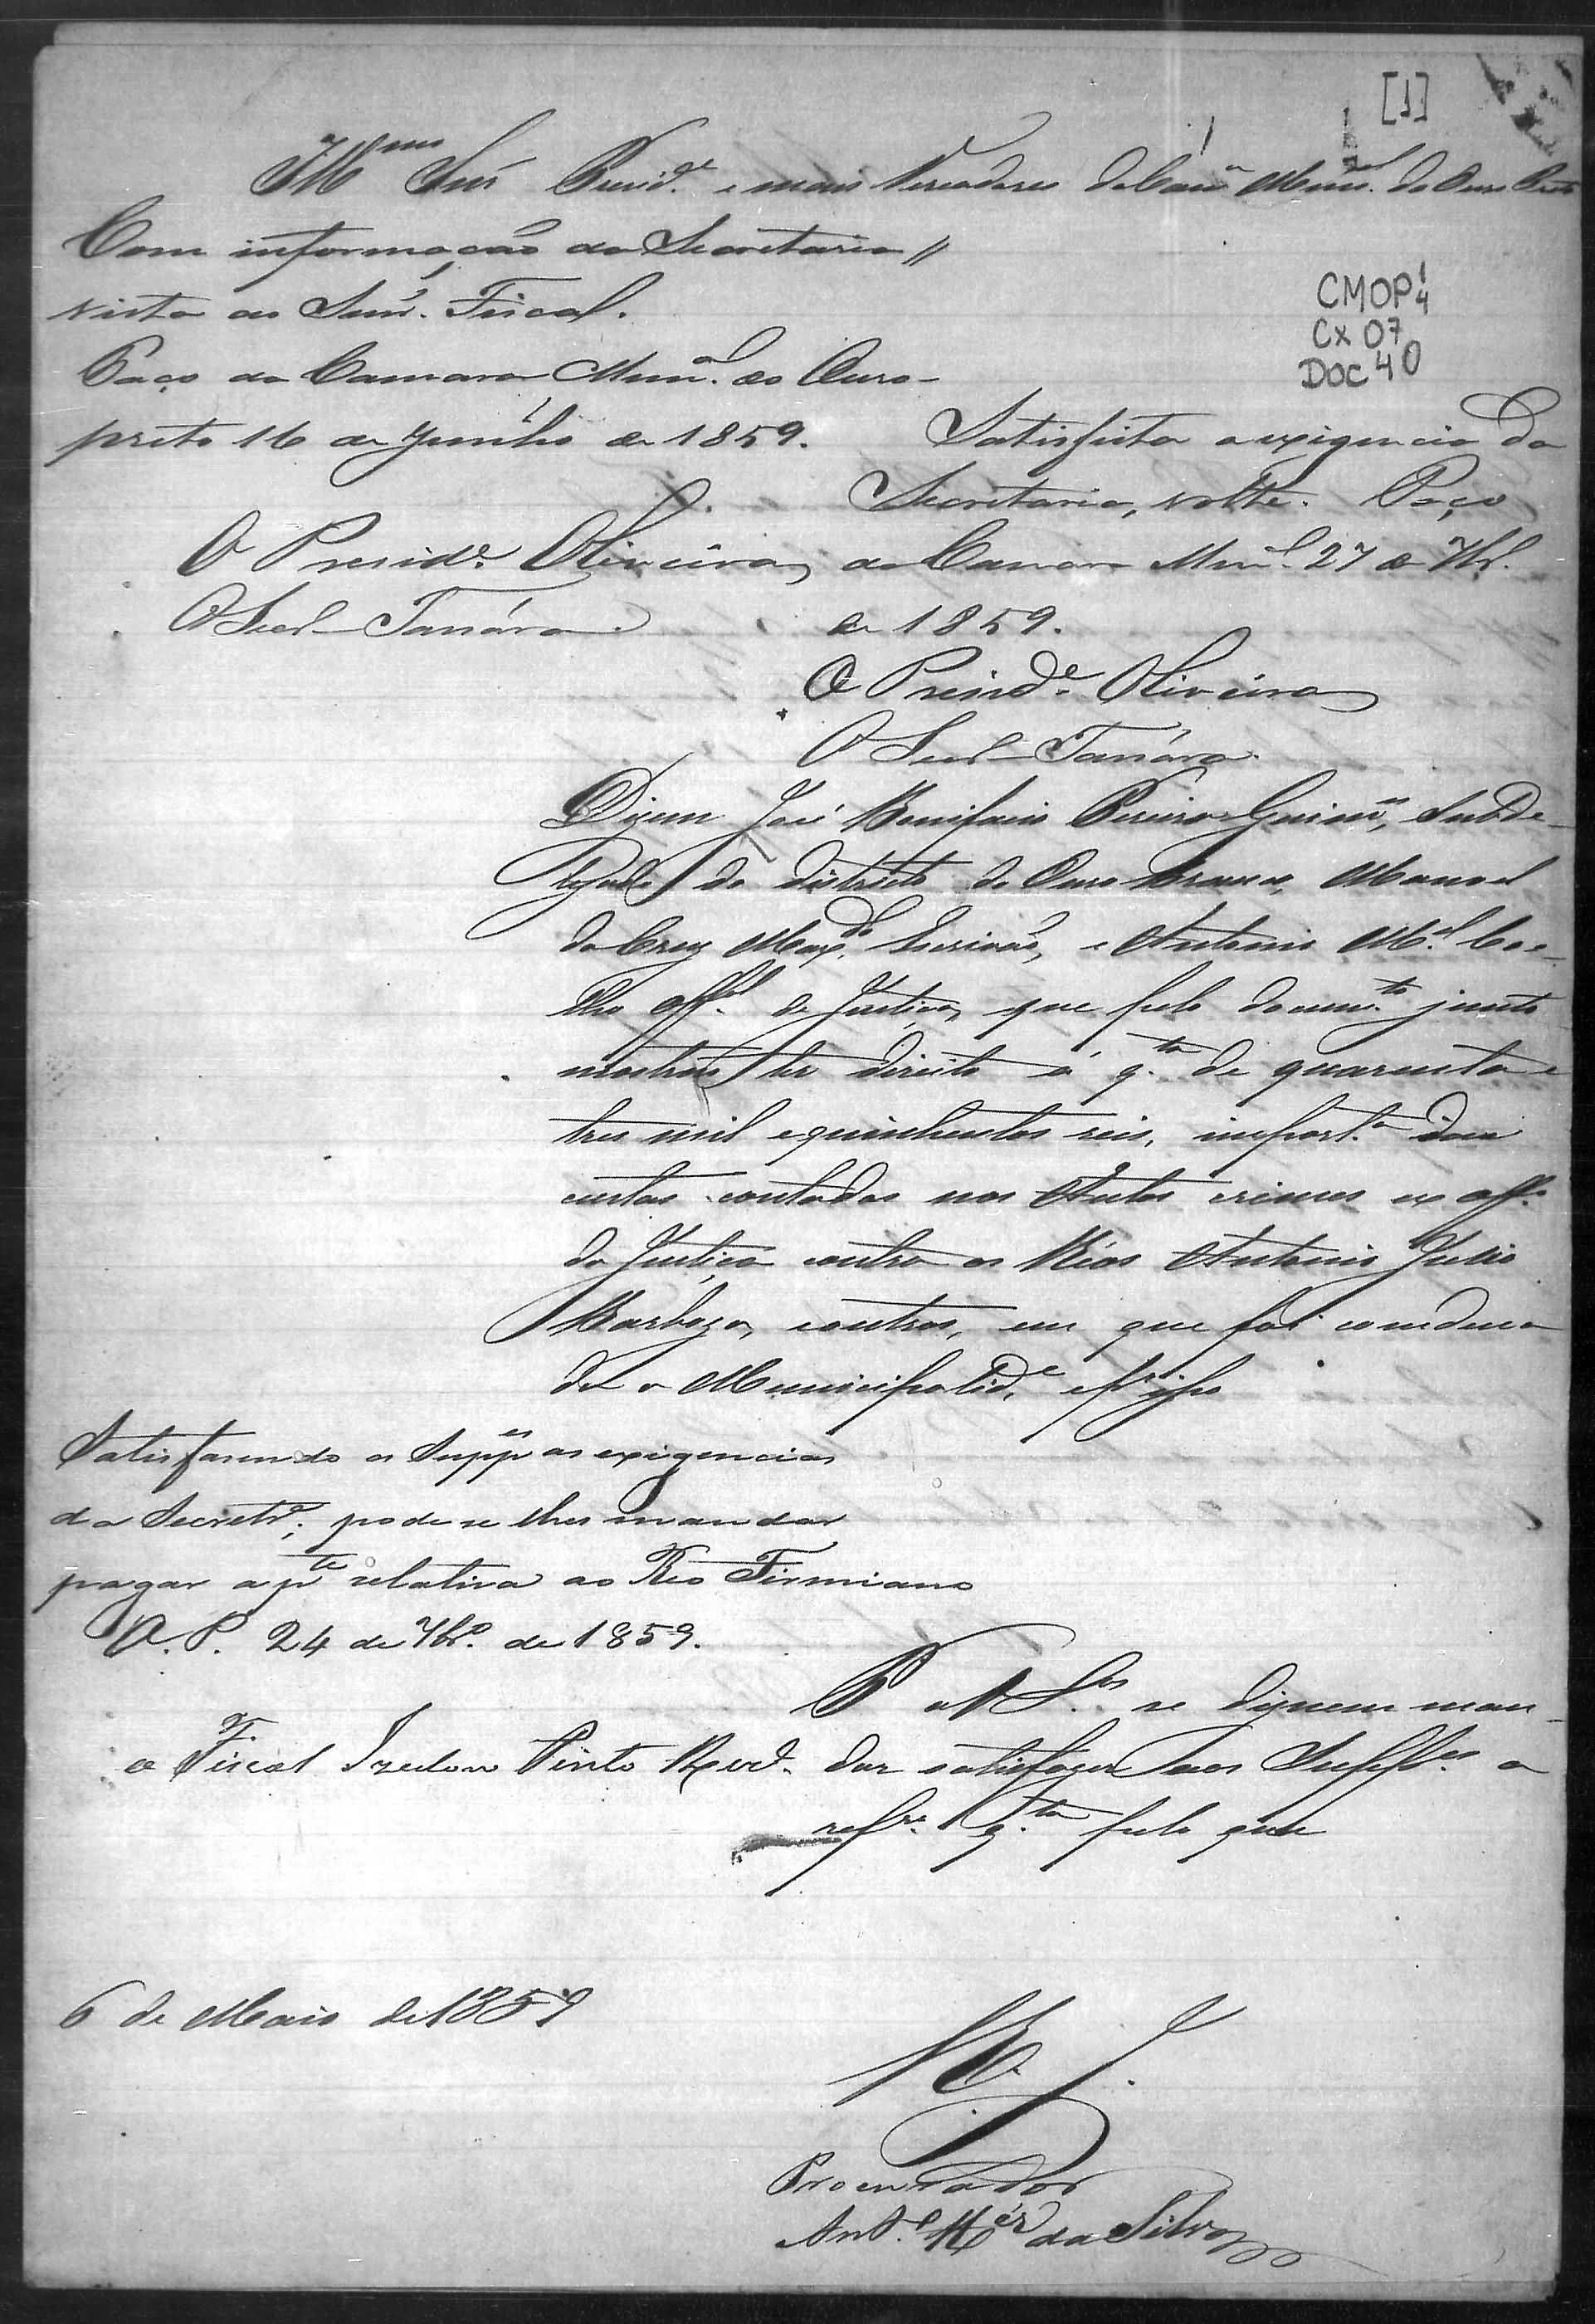 [1]
Illmos Snrs Presid.e e mais Vereadores da Camª Mun.al do Ouro Preto
CMOP 1/4
Cx 07
DOC 40
Com informação da Secretaria //
vista ao Senr. Fiscal.
Paço da Camara Mun.al do Ouro-
preto 16 de Junho de 1859.
O Presid.e Oliveira
O Secr.
Satisfeita a exigencia da
Secretaria, volte. Paço
da Camara Mun.al 27 de 7br.
de 1859.
O Presid.e Oliveira
O Secr.
Dizem José Bonifacio Pereira Guimes, Subde-
legado do districto do Ouro Branco, Manoel
da Cruz Maxdo, Escrivão, e Antonio M.el Coe-
lho off.al de Justiça, que pelo docum.to junto
mostrão ter direito á q.ta de quarenta e
tres mil e quinhentos reis, import.a das
custas contadas nos Autos crimes ex off.o
da Justiça contra os Réos Antonio Julio
Barboza, e outros, em que foi condemna
da a Municipalid.e e pr isso
Satisfasendo os Suppes as exigencias
da Secretr.a; pode se lhes mandar
pagar a pte relativa ao Reo Firmiano
O. P. 24 de 7br.o de 1859.
o Fiscal Izidoro Pinto Rezd.
P a V S.as se dignem man-
dar satisfazer aos Supp.es a
refr.a q.ta pelo que
6 de Maio de 1859
E. R. M.
Procurador
Ant.o da Silva